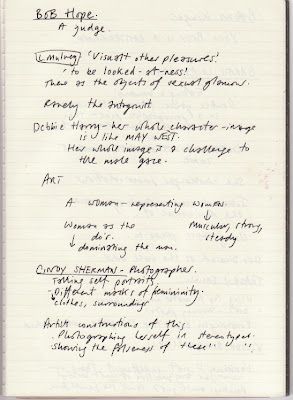 BOB HOPE.
A judge.
L mulvey 'Visual + other pleasures'
'to be looked-at-ness!
There as the objects of sexual glamour.
Rarely the antagonist
Debbie Harry - her whole character - image
is like MAY WEST.
Her whole image is a challenge to
the male gaze.
ART
A woman - representing women
Woman as the
do's.
dominating the man.
Muscular, strong,
steady
CINDY SHERMAN - Photographer.
Taking self portraits
Different masks of femininity.
clothes, surroundings
Artists constructions of this.
Photographing herself in stereotypes.
showing the falseness of these '' ''